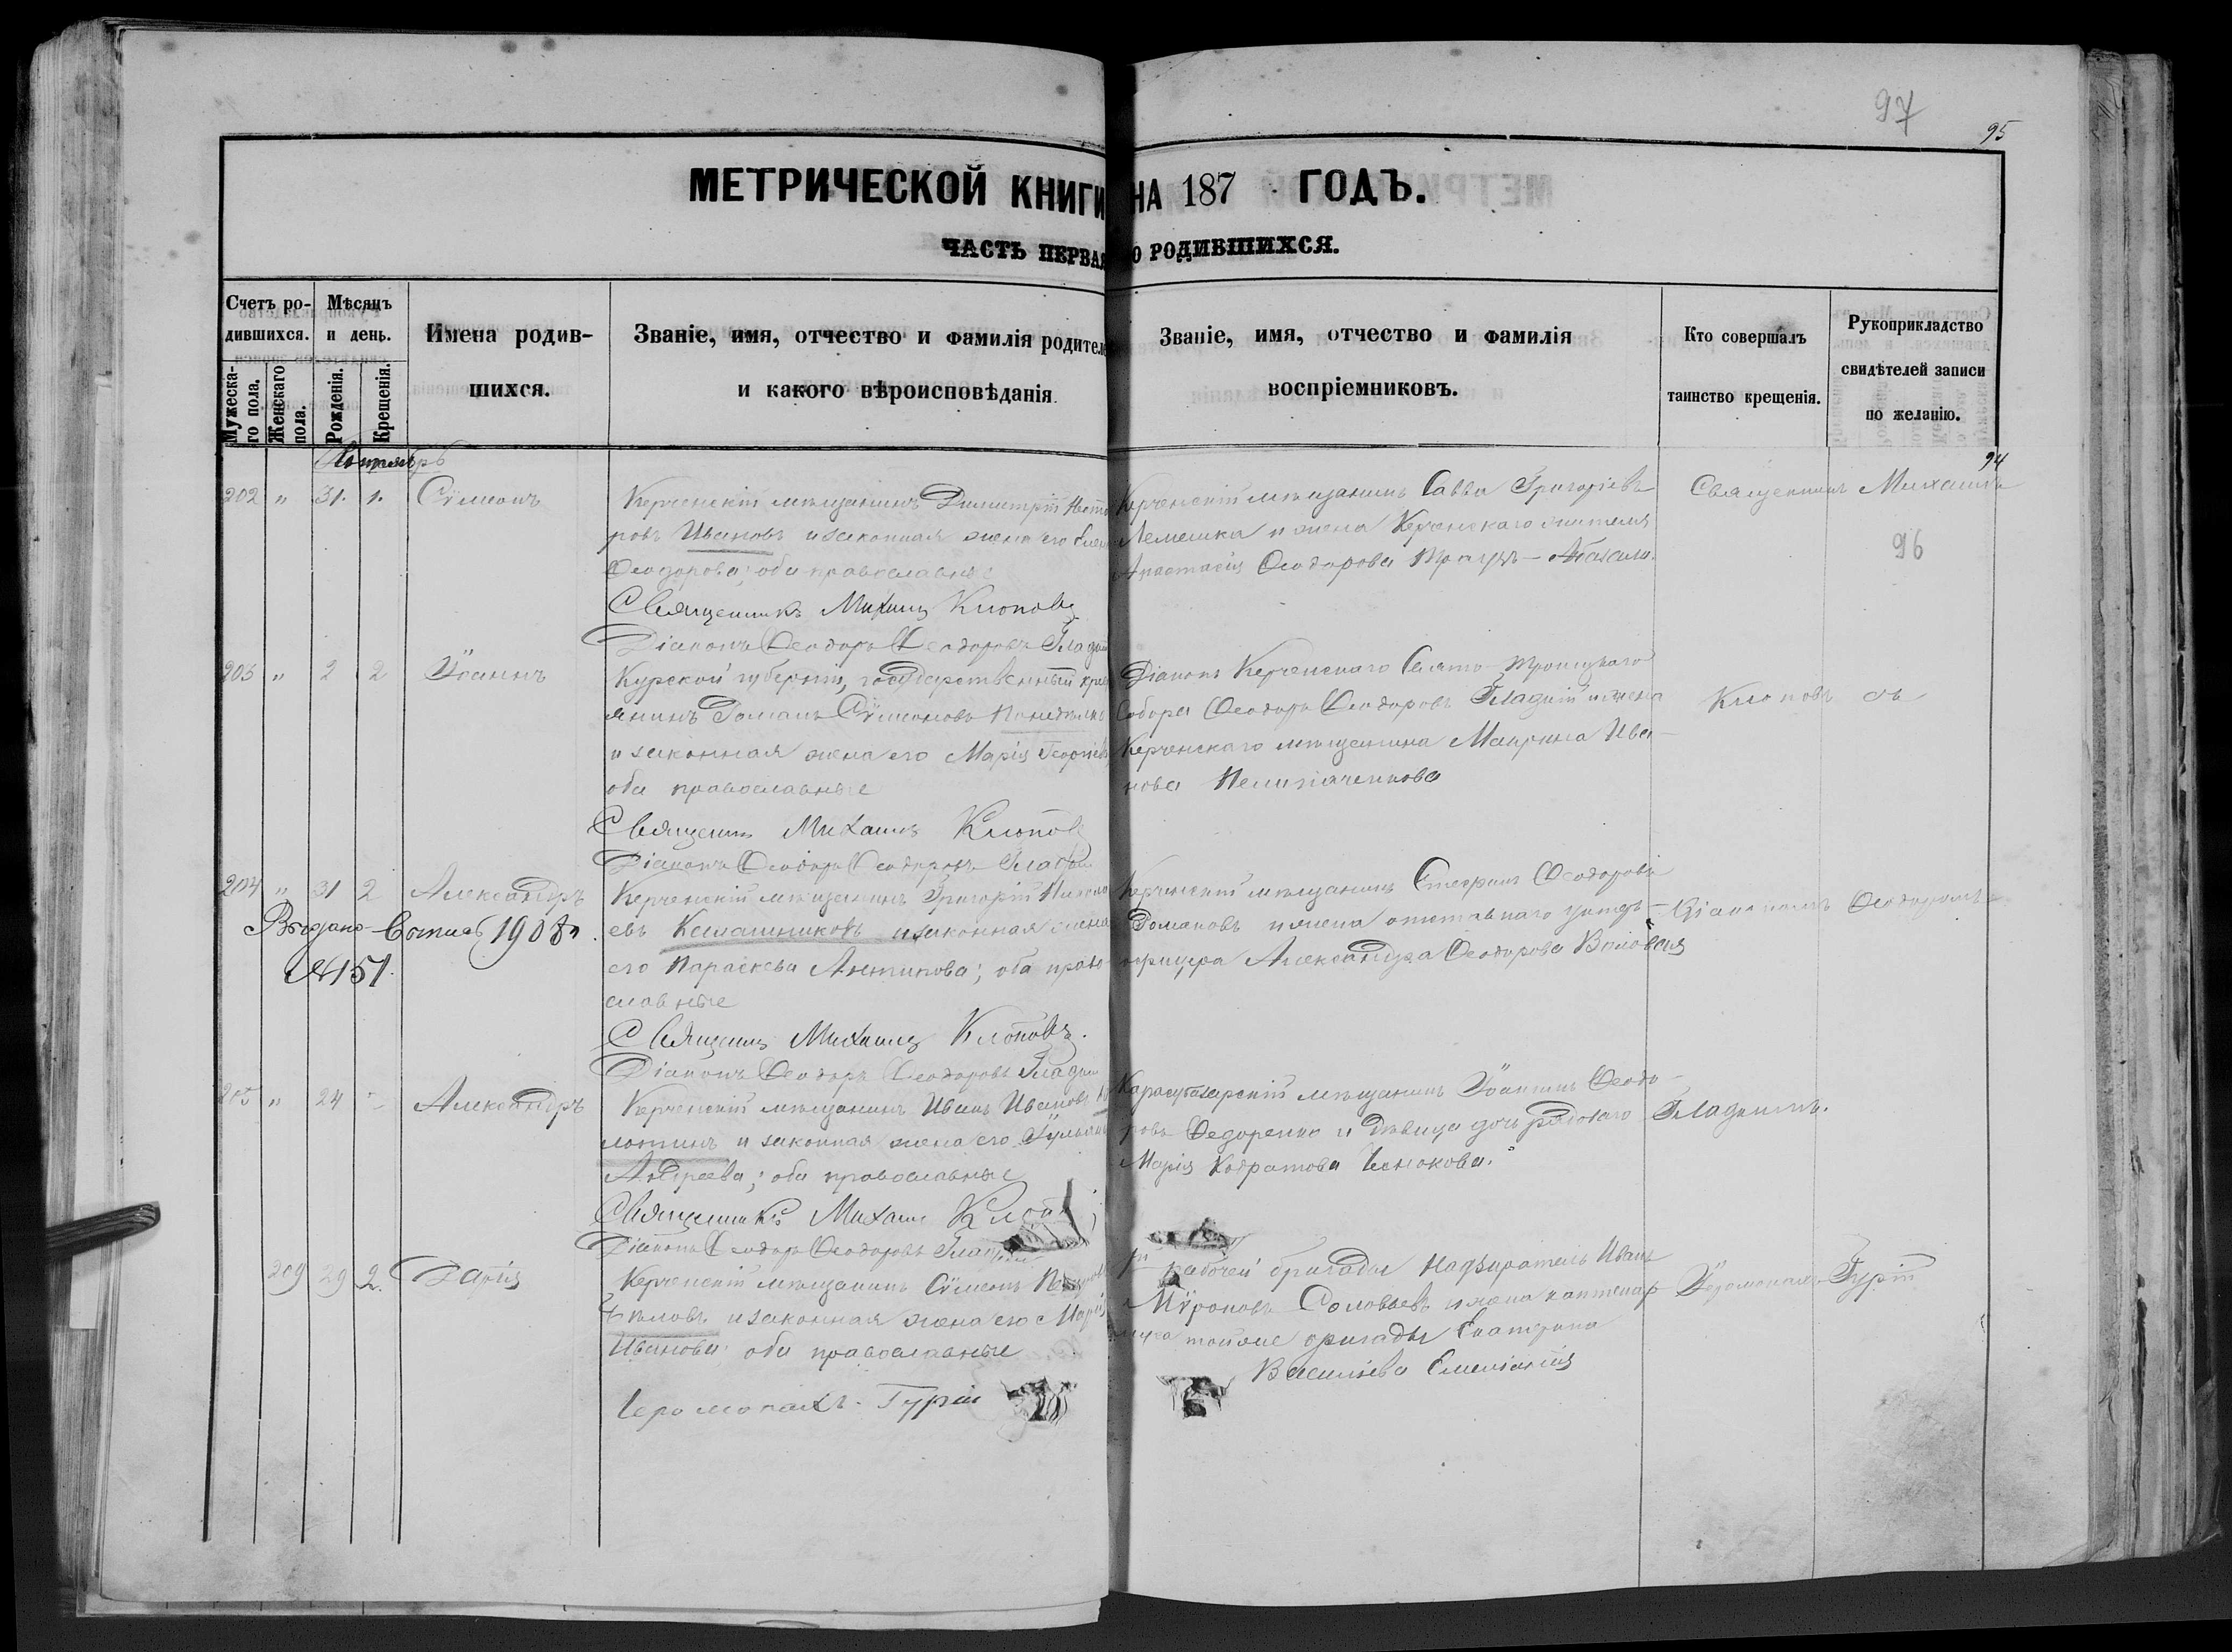 97
95
МЕТРИЧЕСКОЙ КНИГИ НА 187 ГОДЪ.
ЧАСТЬ ПЕРВАЯ О РОДИВШИХСЯ.
Счетъ ро-
дившихся.
Мужеска-
го пола.
Женскаго
пола.
Мѣсяцъ
и день.
Рожденія.
Крещенія.
Имена родив-
шихся.
Званіе, имя, отчество и фамилія родителе
и какого вѣроисповѣданія
Званіе, имя, отчество и фамилія
воспріемниковъ.
Кто совершалъ
таинство крещенія.
Рукоприкладство
свидѣтелей записи
по желанію.
94
96
202 " 31. 1. Сѵмеонъ
Керченскій мѣщанинъ Димитрій Несто
ровъ Ивановъ и законная жена его
Ѳеодорова; оба православные
Священникъ Михаилъ Клоповъ
Діаконъ Ѳеодоръ Ѳеодоровъ Гладкій
Керченскій мѣщанинъ Савва Григоріевъ
Лемешка и жена Керченскаго жителя
Анастасія Ѳеодорова
Священникъ Михаилъ
203 " 2 2 Іоаннъ
Курской губерніи, государственный крес
янинъ Романъ Сѵмеоновъ
и законная жена его Марія Георгіева
оба православные
Священникъ Михаилъ Клоповъ
Діаконъ Ѳеодоръ Ѳеодоровъ Гладкій
Діаконъ Керченскаго Свято-Троицкаго
Собора Ѳеодоръ Ѳеодоровъ Гладкій и жена
Керченскаго мѣщанина Маврина Ива-
нова
Клоповъ съ
204 " 31 2 Александръ
Выдано 1908
№ 151.
Керченскій мѣщанинъ Григорій
евъ и законная жена
его Параскева Антипова; оба право-
славные
Священникъ Михаилъ Клоповъ.
Діаконъ Ѳеодоръ Ѳеодоровъ Гладкій
Керченскій мѣщанинъ Стефанъ Ѳеодоровъ
Романовъ и жена отставнаго унтеръ-
офицера Александра Ѳеодорова
Діакономъ Ѳеодоромъ
205 " 24 " Александръ
Керченскій мѣщанинъ Иванъ Ивановъ
и законная жена его
Андреева; оба православные
Священникъ Михаилъ
Діаконъ Ѳеодоръ Ѳеодоровъ Гладкій
Карасубазарскій мѣщанинъ Іоаннъ Ѳеодо-
ровъ Федоренко и дѣвица дочь рядоваго
Марія Кодратова
Гладкимъ.
209 29 2. Дарія
Керченскій мѣщанинъ Сѵмеонъ
и законная жена его Марія
Иванова; оба православные
Іеромонахъ Гурій
рабочей бригады надзиратель Иванъ
Мѵроновъ Соловьевъ и жена каптенар
муса тойже бригады Екатерина
Василіева
Іеромонахъ Гурій